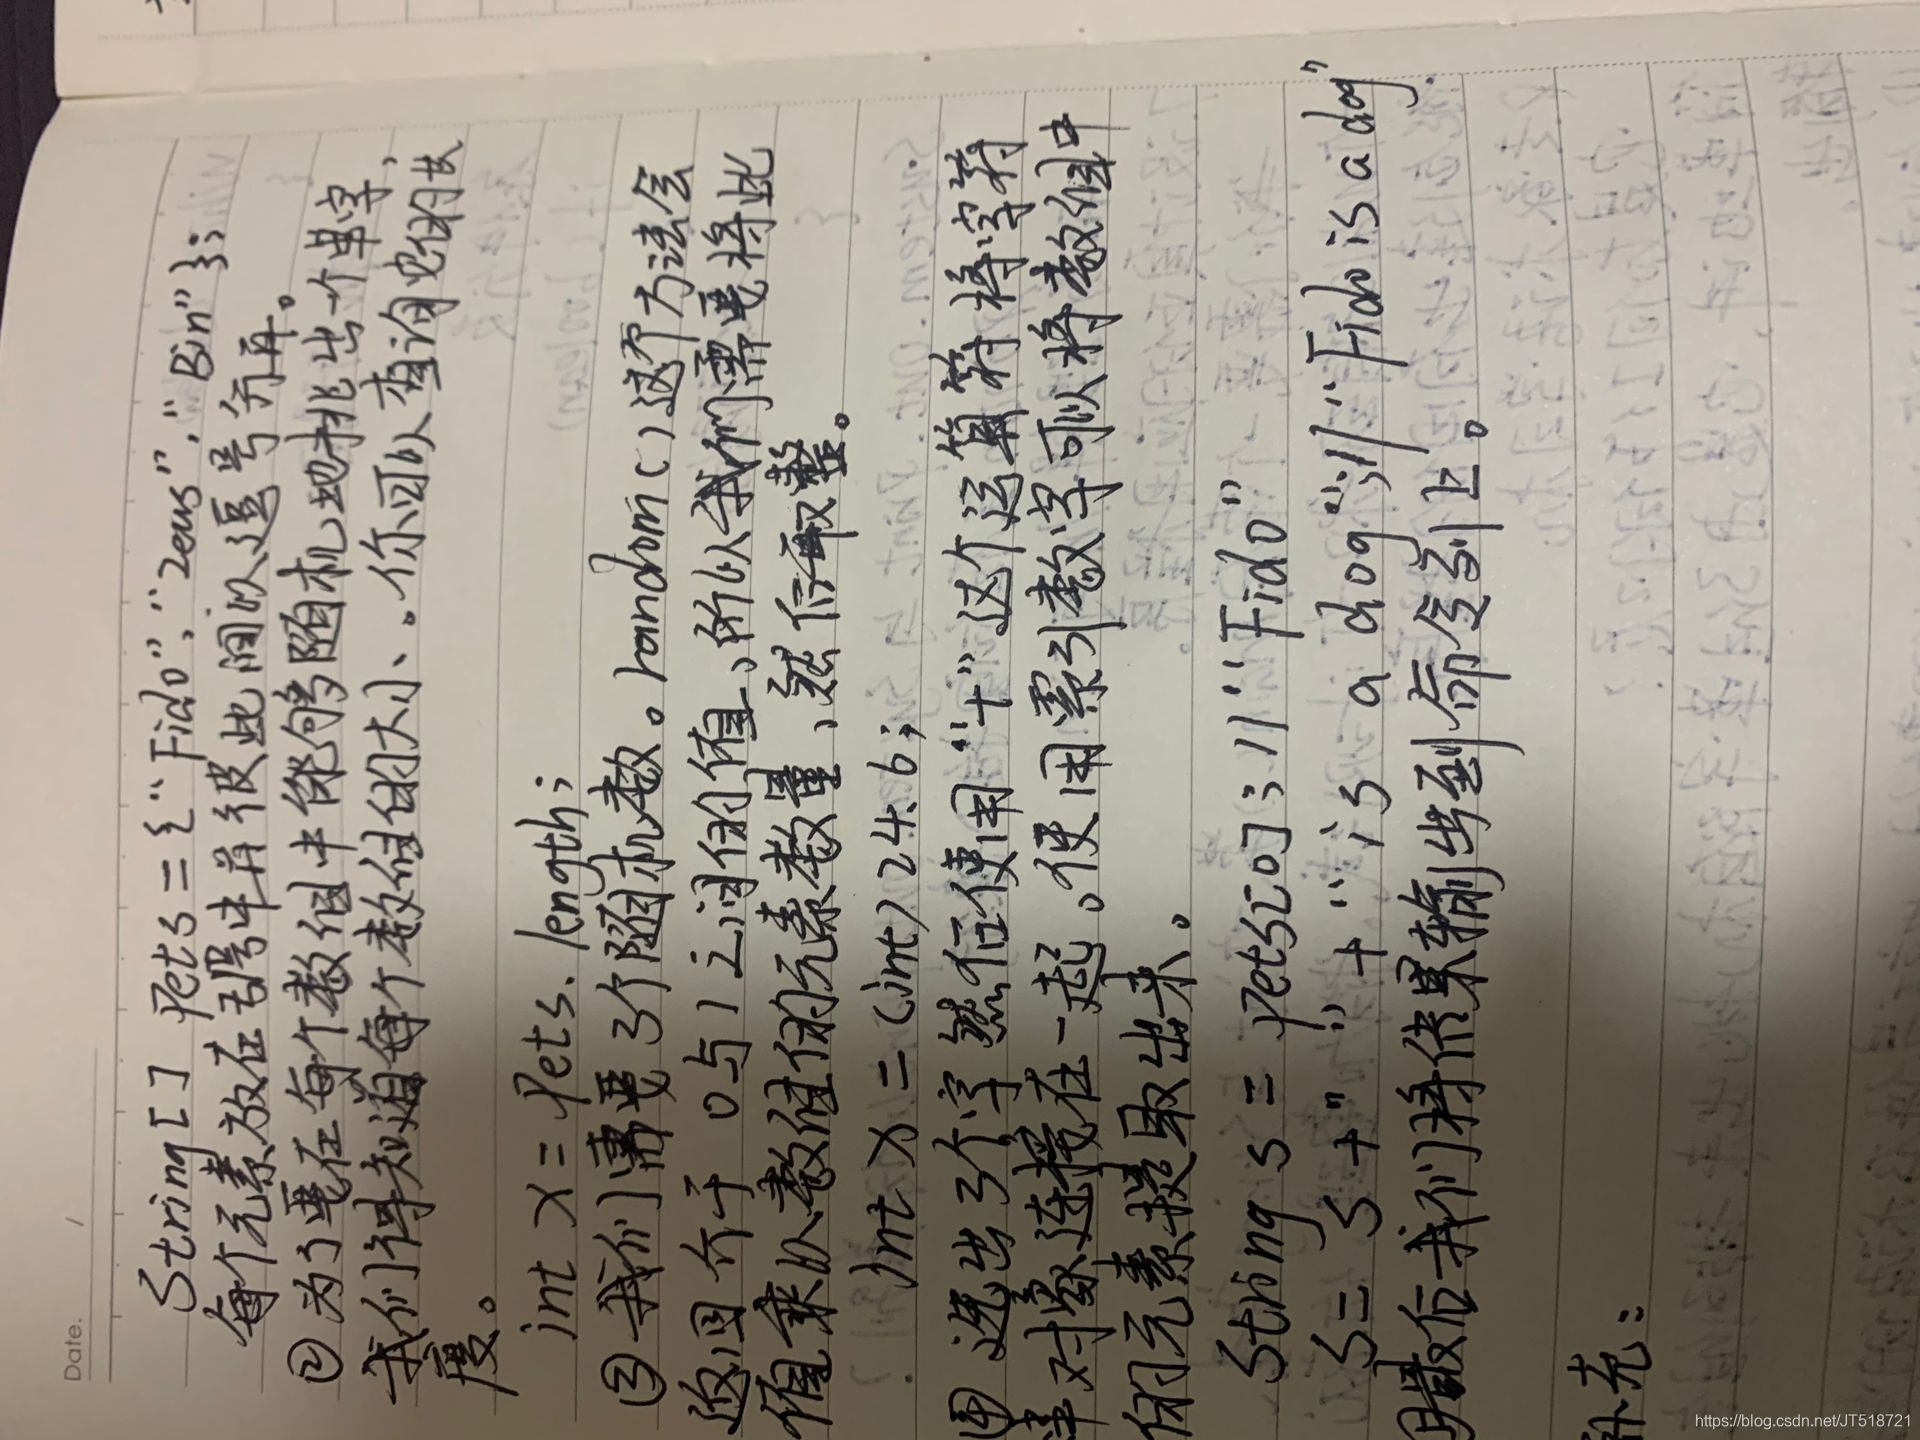 Date. /
String[] Pets={"Fido","Zeus","Bin"};
每个元素放在括号中并彼此间以逗号分再。
②为了要在每个数组中能够随机地挑出一个单字,
我们得知道每个数组的大小、。你可以查询数组的长
度。
int x=Pets.length;
③我们需要3个随机数。random()这个方法会
返回介于0与1之间的值、所以我们需要将此
值乘以数组的元素数量、然后取整。
int x=(int)24.6;
④选出3个字然后使用"+"这个运算符将字符
串对象连接在一起。使用索引数字可以将数组中
的元素提取出来。
String s=Pets[0];//"Fido"
s=s+" "+"is a dog";//"Fido is a dog"
最后我们将结果输出到命令引上。
补充:
https://blog.csdn.net/JT518721